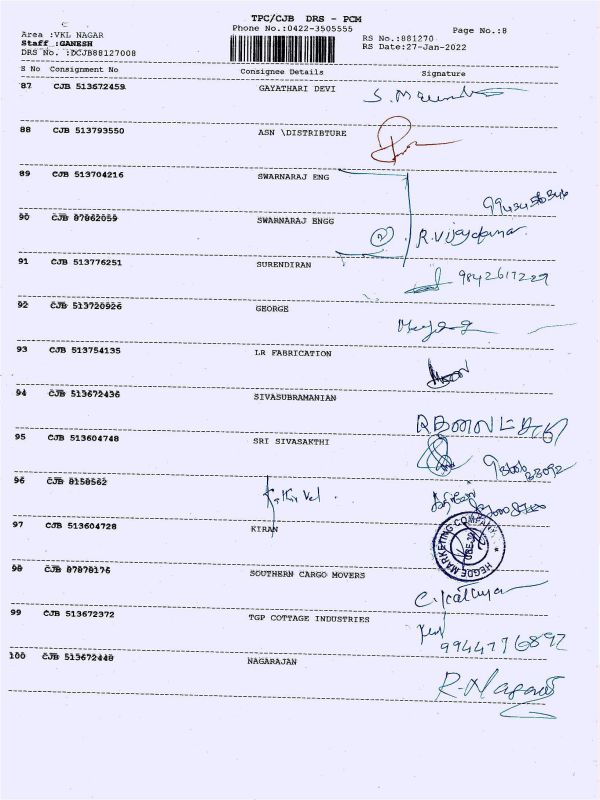 TPC/CJB DRS - PCM
Phone No.:0422-3505555
Page No.:8
Area :VKL NAGAR
Staff :GANESH
DRS No. :DCJB88127008
RS No.:881270
RS Date:27-Jan-2022
S No Consignment No Consignee Details Signature
87 CJB 513672459 GAYATHARI DEVI
88 CJB 513793550 ASN \DISTRIBTURE
89 CJB 513704216 SWARNARAJ ENG
90 CJB 87062059 SWARNARAJ ENGG
2 R.Vijayakumar
91 CJB 513776251 SURENDIRAN
9842617229
92 CJB 513720926 GEORGE
93 CJB 513754135 LR FABRICATION
94 CJB 513672436 SIVASUBRAMANIAN
95 CJB 513604748 SRI SIVASAKTHI
96 CJB 8150562
Kathir Vel
97 CJB 513604728 KIRAN
HEGDE MARKETING COMPANY
98 CJB 87878176 SOUTHERN CARGO MOVERS
99 CJB 513672372 TGP COTTAGE INDUSTRIES
9944776892
100 CJB 513672448 NAGARAJAN